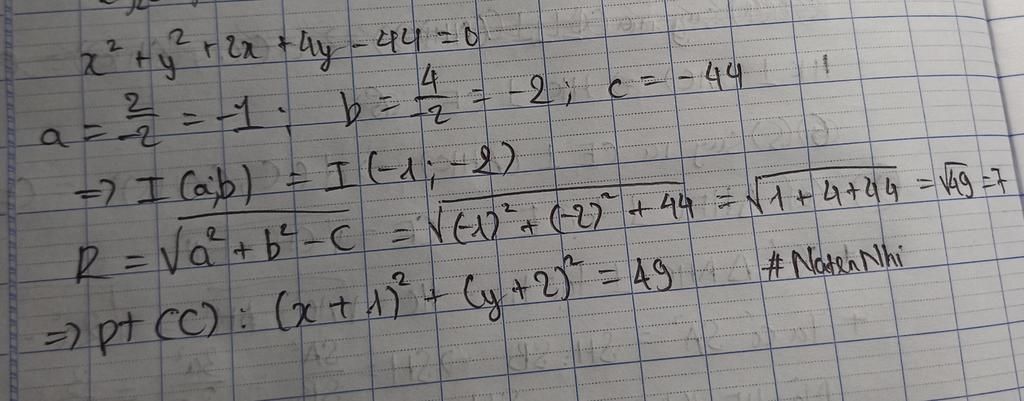 x² + y² + 2x + 4y - 44 = 0
a = 2/-2 = -1; b = 4/-2 = -2; c = -44
=> I (a;b) = I (-1; -2)
R = √(a² + b² - c) = √((-1)² + (-2)² + 44) = √(1 + 4 + 44) = √49 = 7
=> pt (C): (x + 1)² + (y + 2)² = 49 #NatenNhi